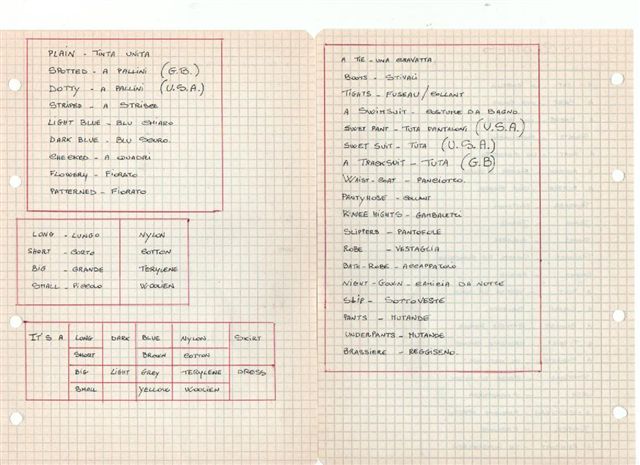 PLAIN - TINTA UNITA
SPOTTED - A PALLINI (G.B.)
DOTTY - A PALLINI (U.S.A.)
STRIPED - A STRISCE
LIGHT BLUE - BLU CHIARO
DARK BLUE - BLU SCURO.
CHECKED - A QUADRI
FLOWERY - FIORATO
PATTERNED - FIORATO
LONG - LUNGO NYLON
SHORT - CORTO COTTON
BIG - GRANDE TERYLENE
SMALL - PICCOLO WOOLLEN
IT'S A LONG DARK BLUE NYLON SKIRT
SHORT BROWN COTTON
BIG LIGHT GREY TERYLENE DRESS
SMALL YELLOW WOOLLEN
A TIE - UNA CRAVATTA.
BOOTS - STIVALI
TIGHTS - FUSEAU / COLLANT
A SWIMSUIT - COSTUME DA BAGNO.
SWEET PANT - TUTA PANTALONI (U.S.A.)
SWEET SUIT - TUTA (U.S.A.)
A TRACKSUIT - TUTA (G.B)
WAIST-COAT - PANCIOTTO.
PANTYHOSE - COLLANT
KNEE HIGHTS - GAMBALETTI
SLIPPERS - PANTOFOLE
ROBE - VESTAGLIA
BATH-ROBE - ACCAPPATOIO
NIGHT-GOWN - CAMICIA DA NOTTE
SLIP - SOTTOVESTE
PANTS - MUTANDE
UNDERPANTS - MUTANDE
BRASSIERE - REGGISENO.